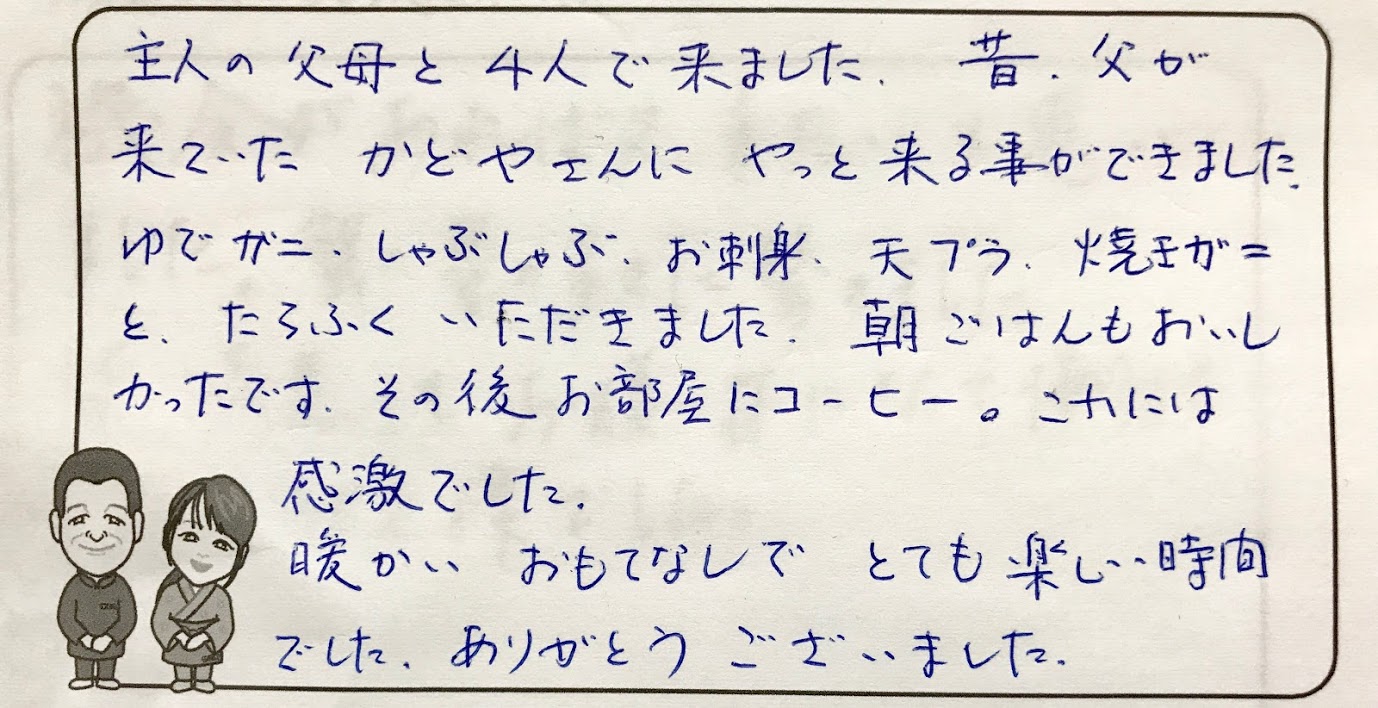 主人の父母と4人で来ました. 昔.父が
来ていた かどやさんに やっと来る事ができました.
ゆでガニ、しゃぶしゃぶ、お刺身、天プラ、焼きガニ
と、たらふく いただきました. 朝ごはんもおいし
かったです. その後お部屋にコーヒー。これには
感激でした.
暖かい おもてなしで とても楽しい時間
でした. ありがとう ございました.